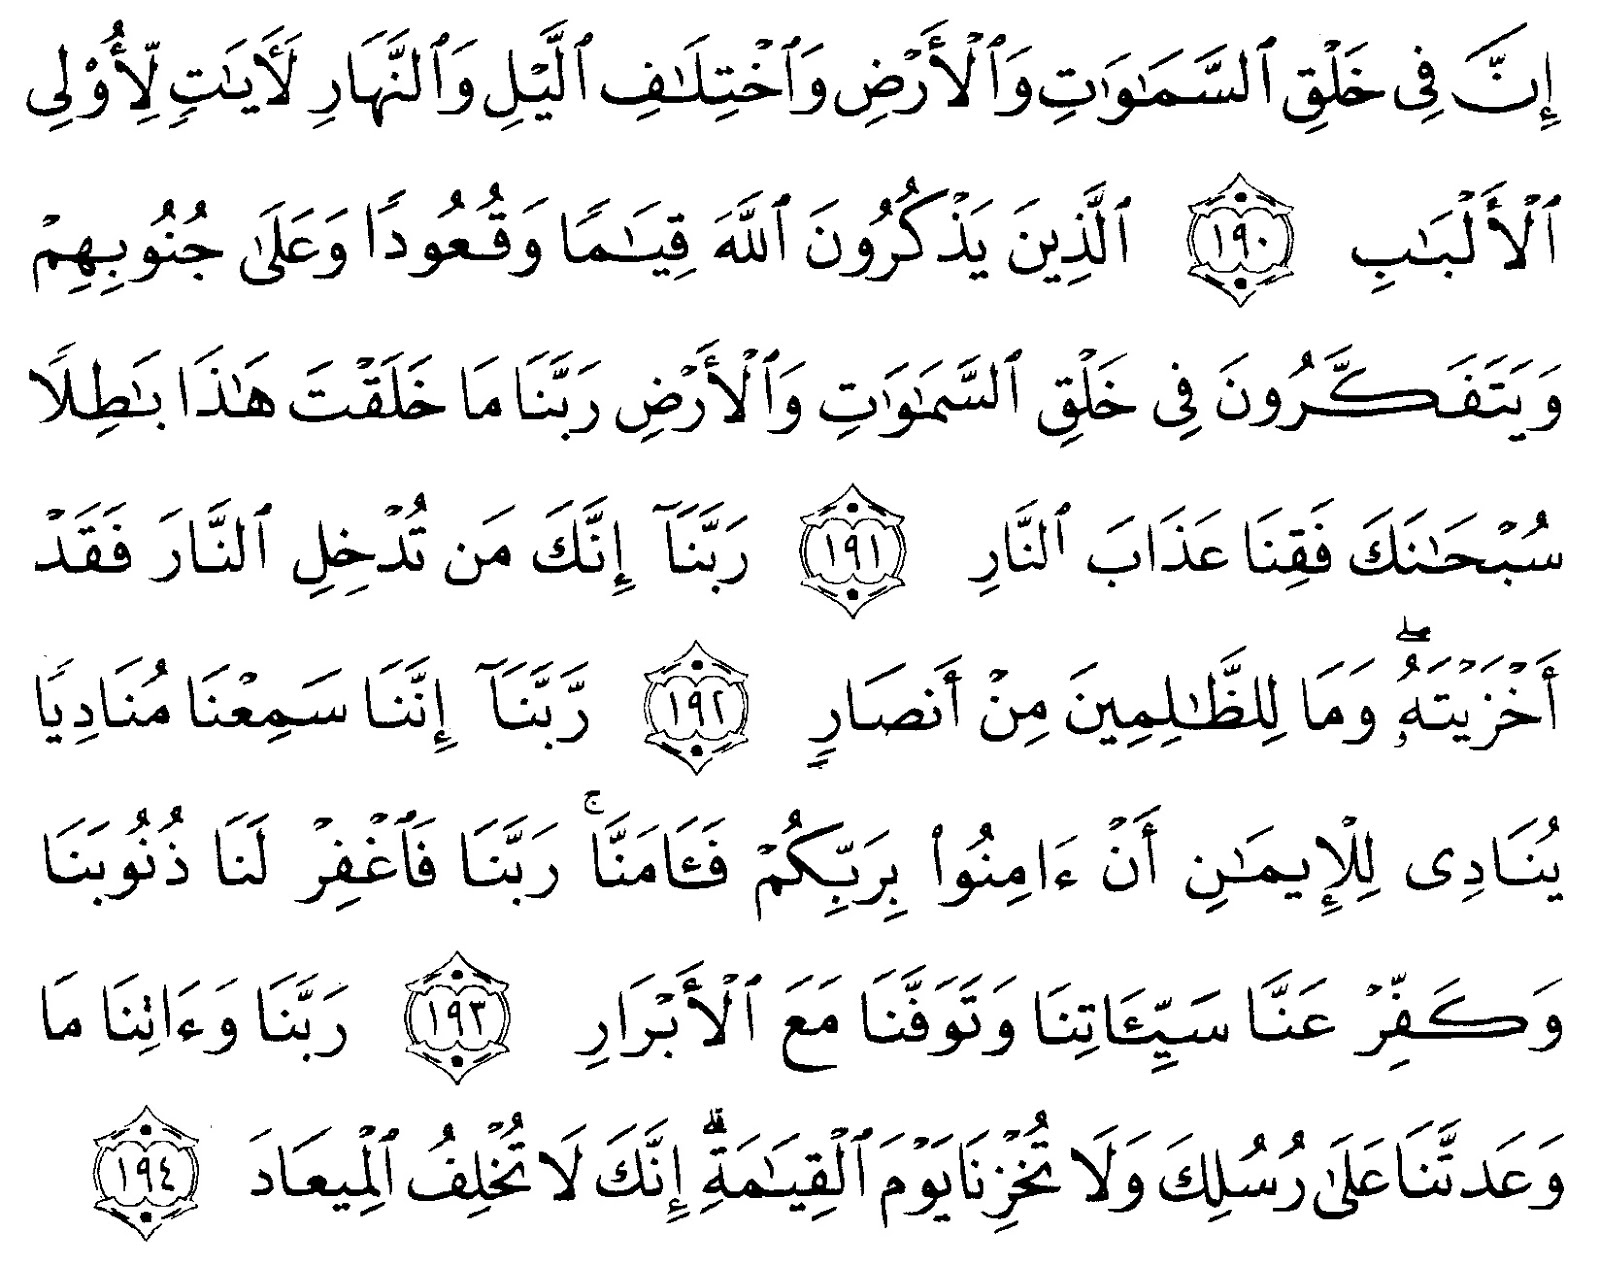 إِنَّ فِى خَلْقِ ٱلسَّمَـٰوَٰتِ وَٱلْأَرْضِ وَٱخْتِلَـٰفِ ٱلَّيْلِ وَٱلنَّهَارِ لَـَٔايَـٰتٍ لِّأُو۟لِى
ٱلْأَلْبَـٰبِ ١٩٠ ٱلَّذِينَ يَذْكُرُونَ ٱللَّهَ قِيَـٰمًا وَقُعُودًا وَعَلَىٰ جُنُوبِهِمْ
وَيَتَفَكَّرُونَ فِى خَلْقِ ٱلسَّمَـٰوَٰتِ وَٱلْأَرْضِ رَبَّنَا مَا خَلَقْتَ هَـٰذَا بَـٰطِلًا
سُبْحَـٰنَكَ فَقِنَا عَذَابَ ٱلنَّارِ ١٩١ رَبَّنَآ إِنَّكَ مَن تُدْخِلِ ٱلنَّارَ فَقَدْ
أَخْزَيْتَهُۥ ۖ وَمَا لِلظَّـٰلِمِينَ مِنْ أَنصَارٍ ١٩٢ رَّبَّنَآ إِنَّنَا سَمِعْنَا مُنَادِيًا
يُنَادِى لِلْإِيمَـٰنِ أَنْ ءَامِنُوا۟ بِرَبِّكُمْ فَـَٔامَنَّا ۚ رَبَّنَا فَٱغْفِرْ لَنَا ذُنُوبَنَا
وَكَفِّرْ عَنَّا سَيِّـَٔاتِنَا وَتَوَفَّنَا مَعَ ٱلْأَبْرَارِ ١٩٣ رَبَّنَا وَءَاتِنَا مَا
وَعَدتَّنَا عَلَىٰ رُسُلِكَ وَلَا تُخْزِنَا يَوْمَ ٱلْقِيَـٰمَةِ ۗ إِنَّكَ لَا تُخْلِفُ ٱلْمِيعَادَ ١٩٤